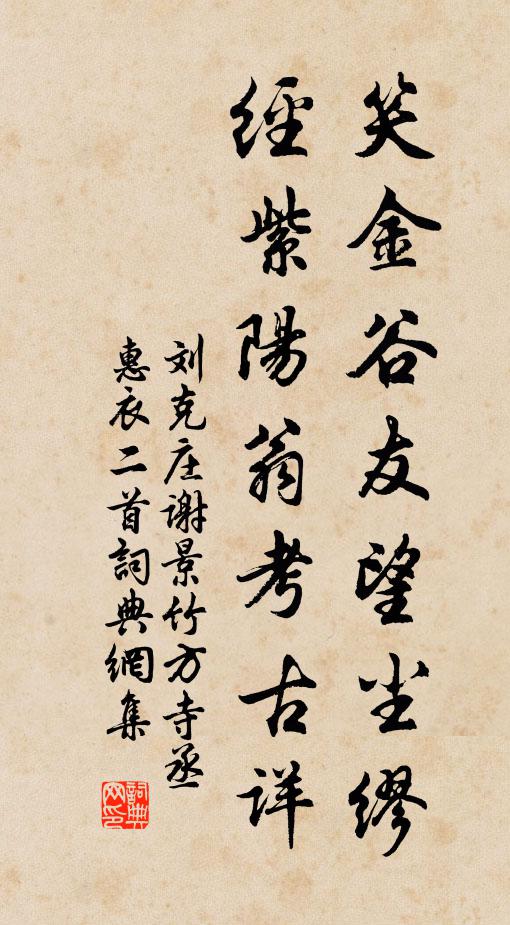 笑金谷友望尘繆
經紫陽翁考古详
刘克庄谢景竹方寺丞
惠衣二首詞典網集
詞典网印